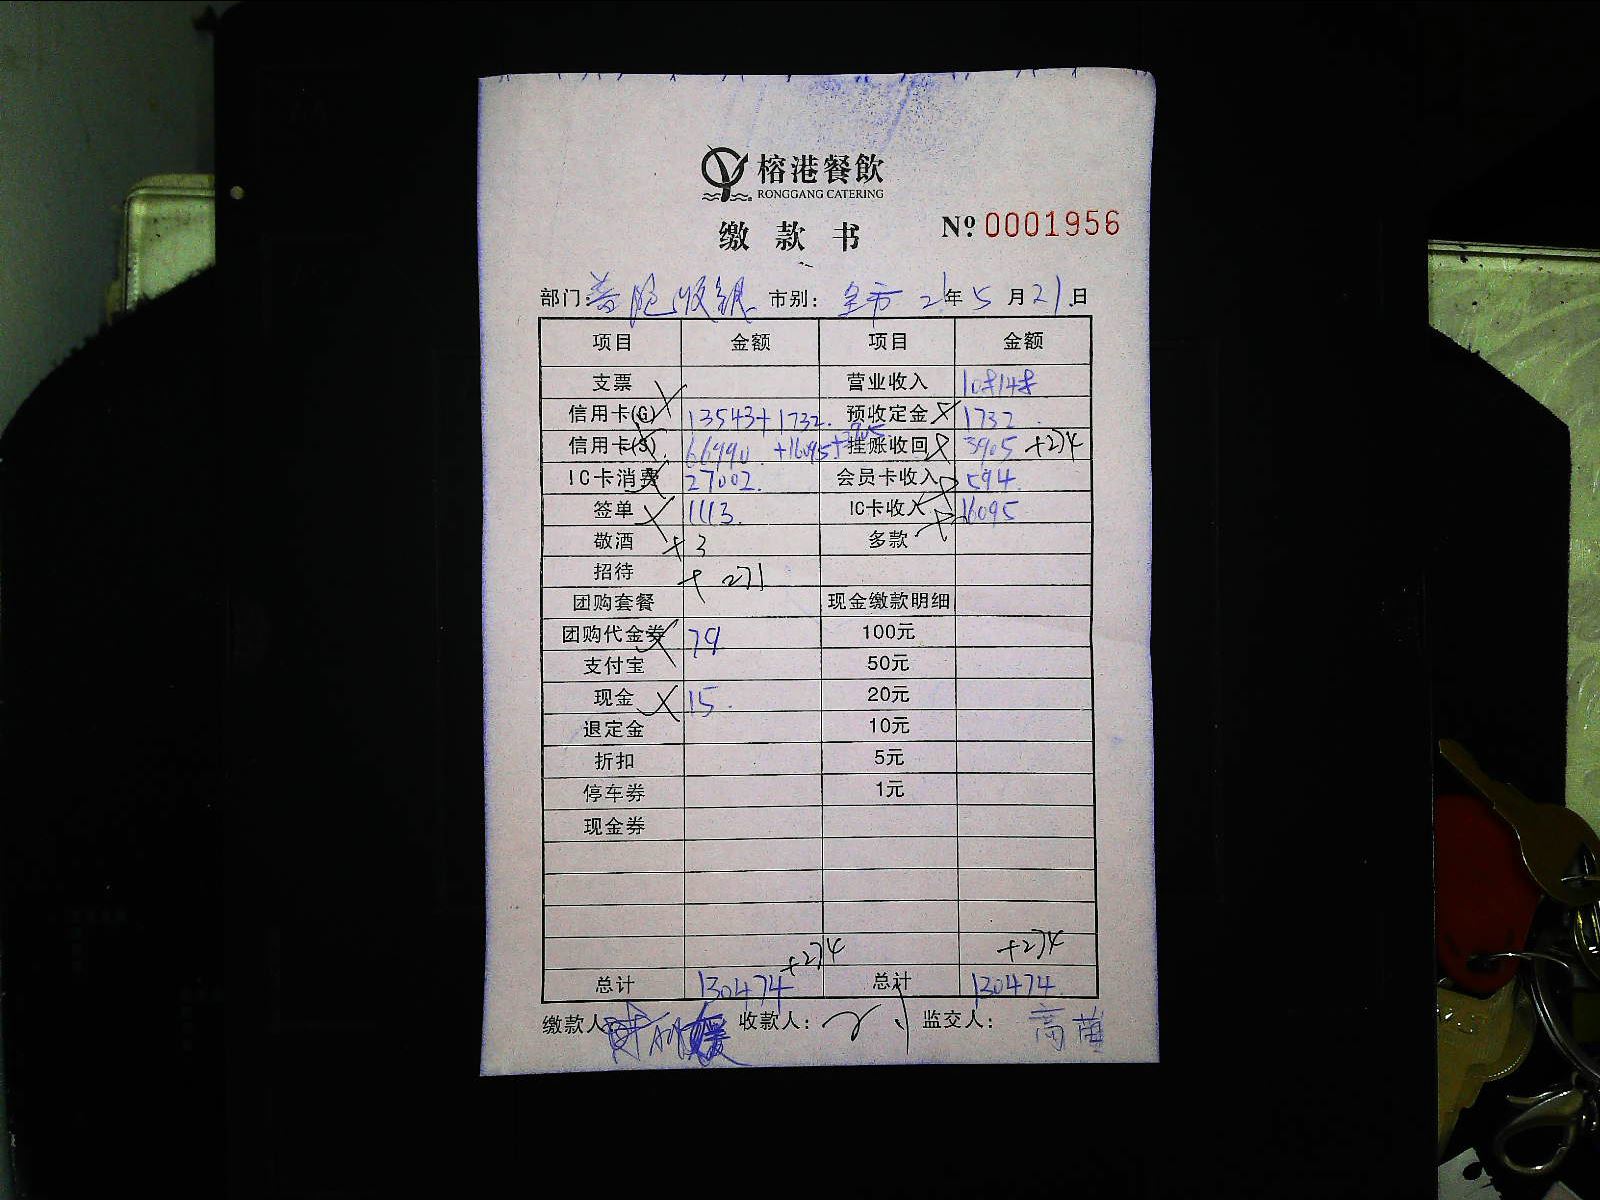 榕港餐飲
RONGGANG CATERING
缴款书 Nº 0001956
部门: 普陀收银 市别: 全市 21年5月21日
项目 金额 项目 金额
支票 营业收入 108148
信用卡(G) 13543+1732. 预收定金 1732
信用卡(S) 66990 +16095+3905 挂账收回 3905 +274
IC卡消费 27002. 会员卡收入 594
签单 1113. IC卡收入 16095
敬酒 +3 多款
招待 + 271
团购套餐 现金缴款明细
团购代金券 79 100元
支付宝 50元
现金 15. 20元
退定金 10元
折扣 5元
停车券 1元
现金券
+274 +274
总计 130474 总计 130474
缴款人: 收款人: 监交人: 高